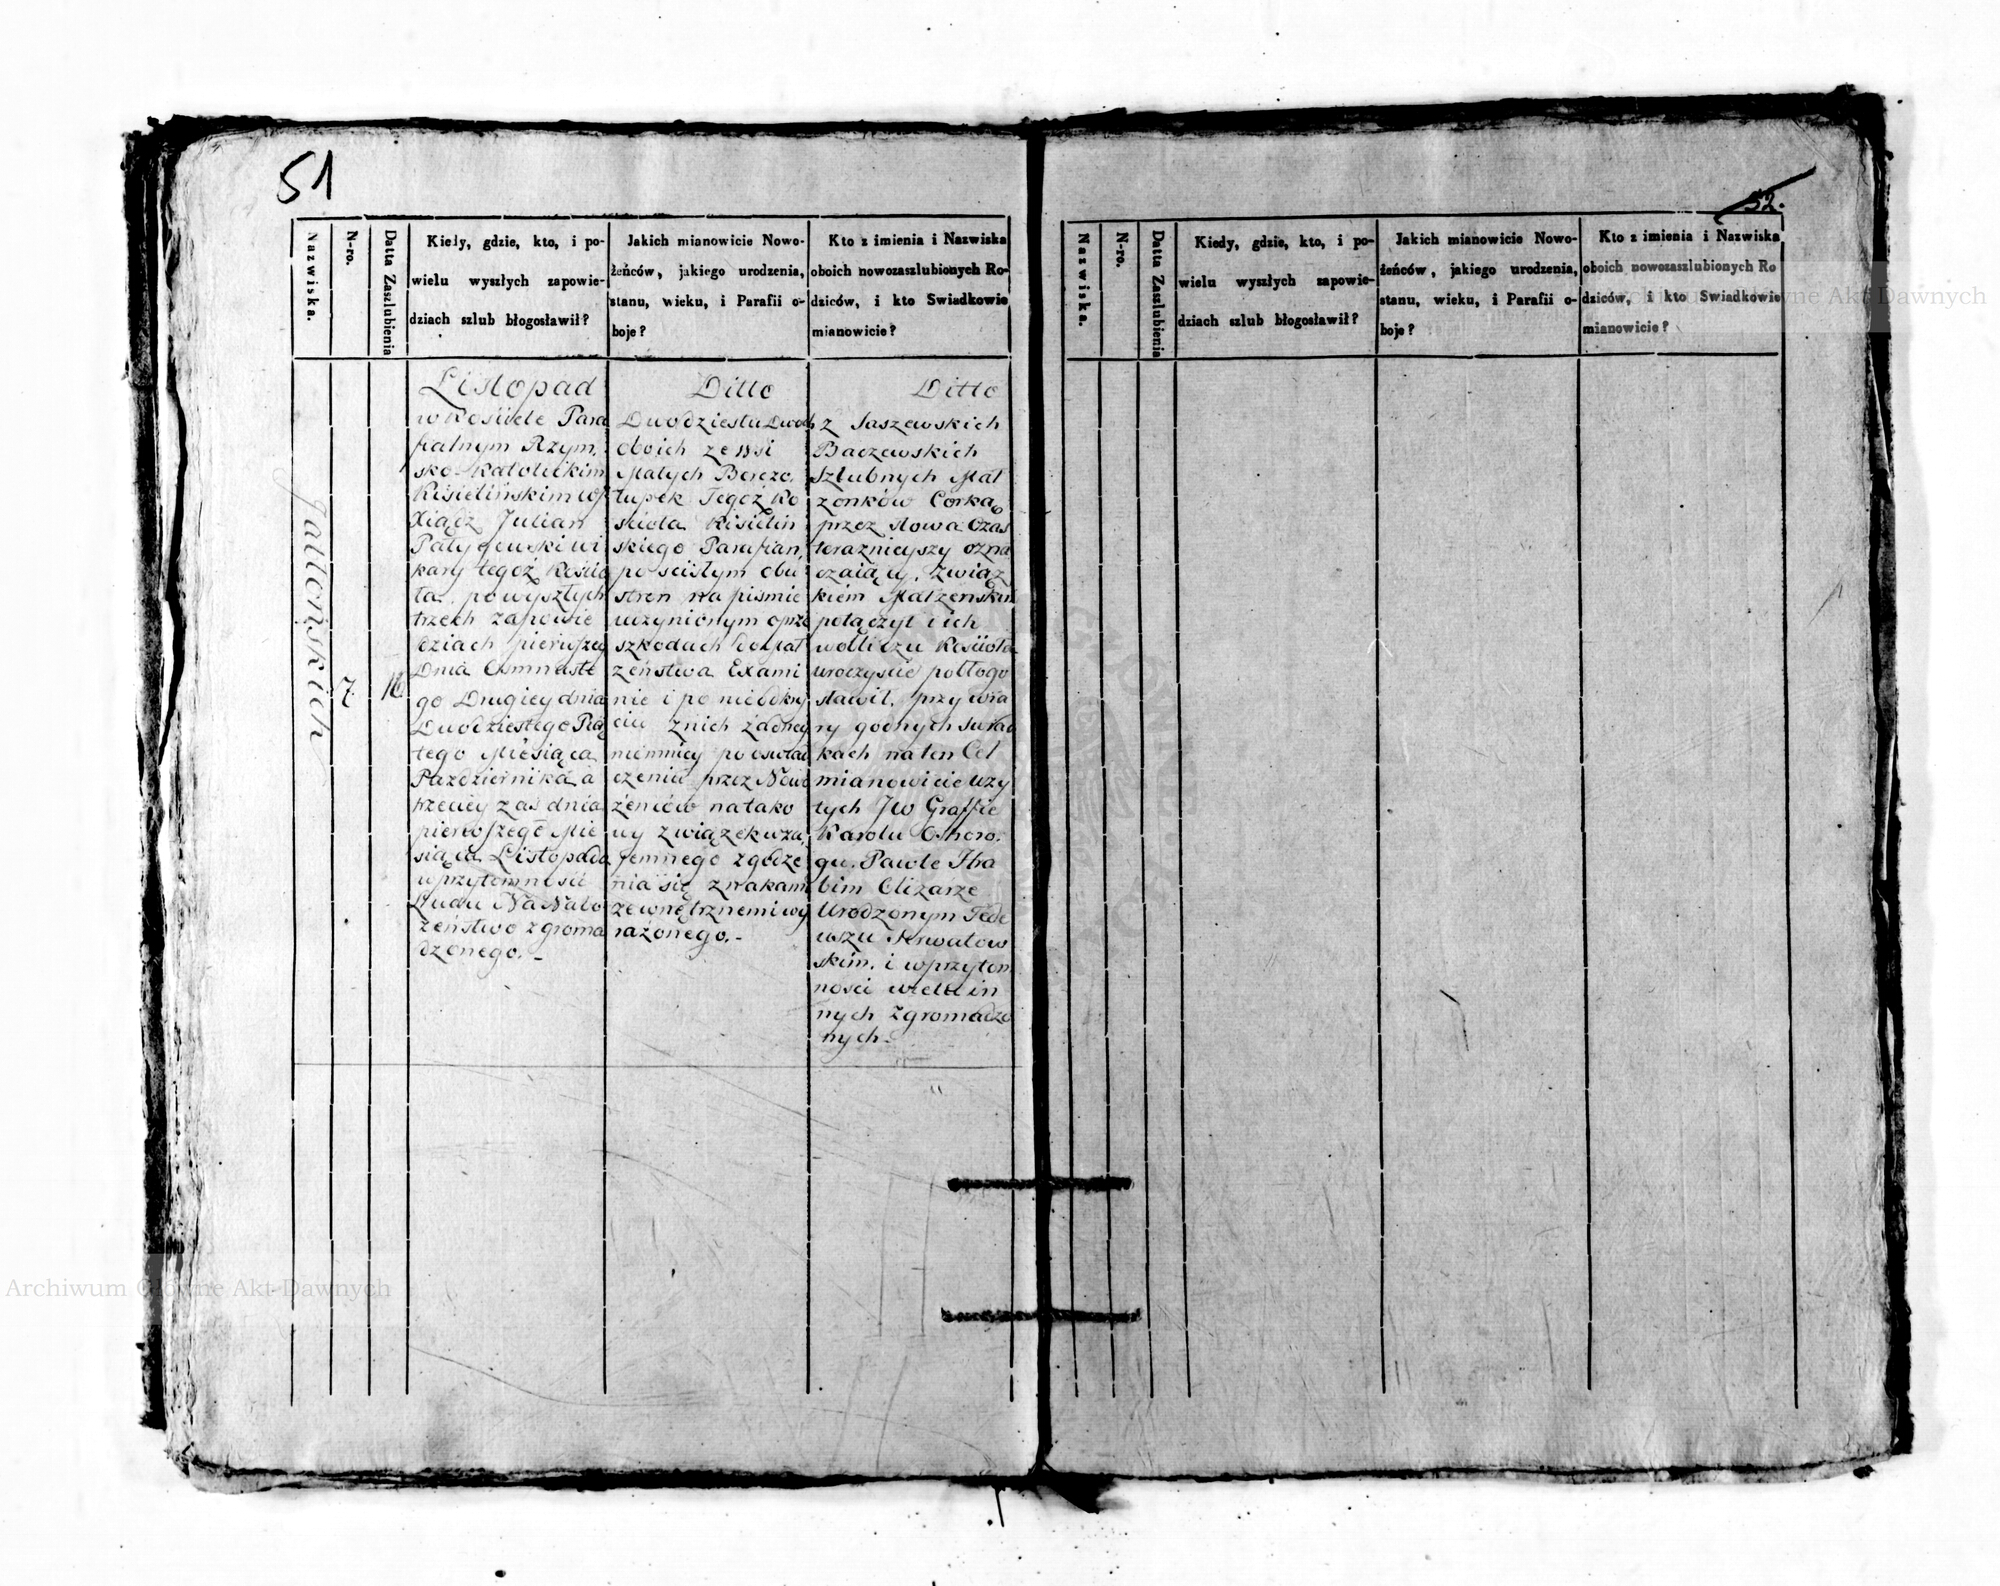 51
Nazwiska.
N-ro.
Datta Zaszlubienia
Kiedy, gdzie, kto, i po-
wielu wyszłych zapowie-
dziach szlub błogosławił?
Jakich mianowicie Nowo-
żeńców, jakiego urodzenia,
stanu, wieku, i Parafii o-
boje?
Kto z imienia i Nazwiska
oboich nowozaszlubionych Ro-
dziców, i kto Swiadkowie
mianowicie?
7
16
Listopad
w Kościele Para
fialnym Rzym,
sko-Katolickim
Kisielińskim
Xiądz Julian
kary tegoż Kościo
ła, po wyszłych
trzech zapowie
dziach pierwszey
Dnia Osmnaste
go Drugiey dnia
Dwudziestego Pią
tego Miesiąca
Pazdziernika a
trzeciey zaś dnia
pierwszego Mie
siąca Listopada
w przytomności
Ludu Na Nabo
żeństwo zgroma
dzonego.-
Ditto
Dwudziestu Dwoch
oboich ze wsi
Małych
Tegoż Ko
scioła Kisielin
skiego Parafian,
po scisłym obu
stron na pismie
uczynionym o prze
szkodach do Mał
żeństwa Exami
nie i po nieodkry
ciu z nich żadney
niemniey po oswiad
czeniu przez Nowo
żeńców na tako
wy związek wza
jemnego zgodze
nia się znakami
zewnętrznemi wy
rażonego.-
Ditto
z Jaszewskich
Baczewskich
Szlubnych Mał
żonków Corką
przez słowa Czas
teraznieyszy ozna
czaiący, Związ
kiem Małżeńskim
połączył i ich
w obliczu Kościoła
uroczyscie pobłogo
sławił, przy wia
ry godnych Swiad
kach na ten Cel
mianowicie uzy
tych JW Graffie
Karolu
gu, Pawle Hra
bim Olizarze
Urodzonym Tade
uszu
skim, i w przytom
ności wielu in
nych zgromadzo
nych.-
52.
Nazwiska.
N-ro.
Datta Zaszlubienia
Kiedy, gdzie, kto, i po-
wielu wyszłych zapowie-
dziach szlub błogosławił?
Jakich mianowicie Nowo-
żeńców, jakiego urodzenia,
stanu, wieku, i Parafii o-
boje?
Kto z imienia i Nazwiska
oboich nowozaszlubionych Ro
dziców, i kto Swiadkowie
mianowicie?
Archiwum Główne Akt Dawnych
Archiwum Główne Akt Dawnych